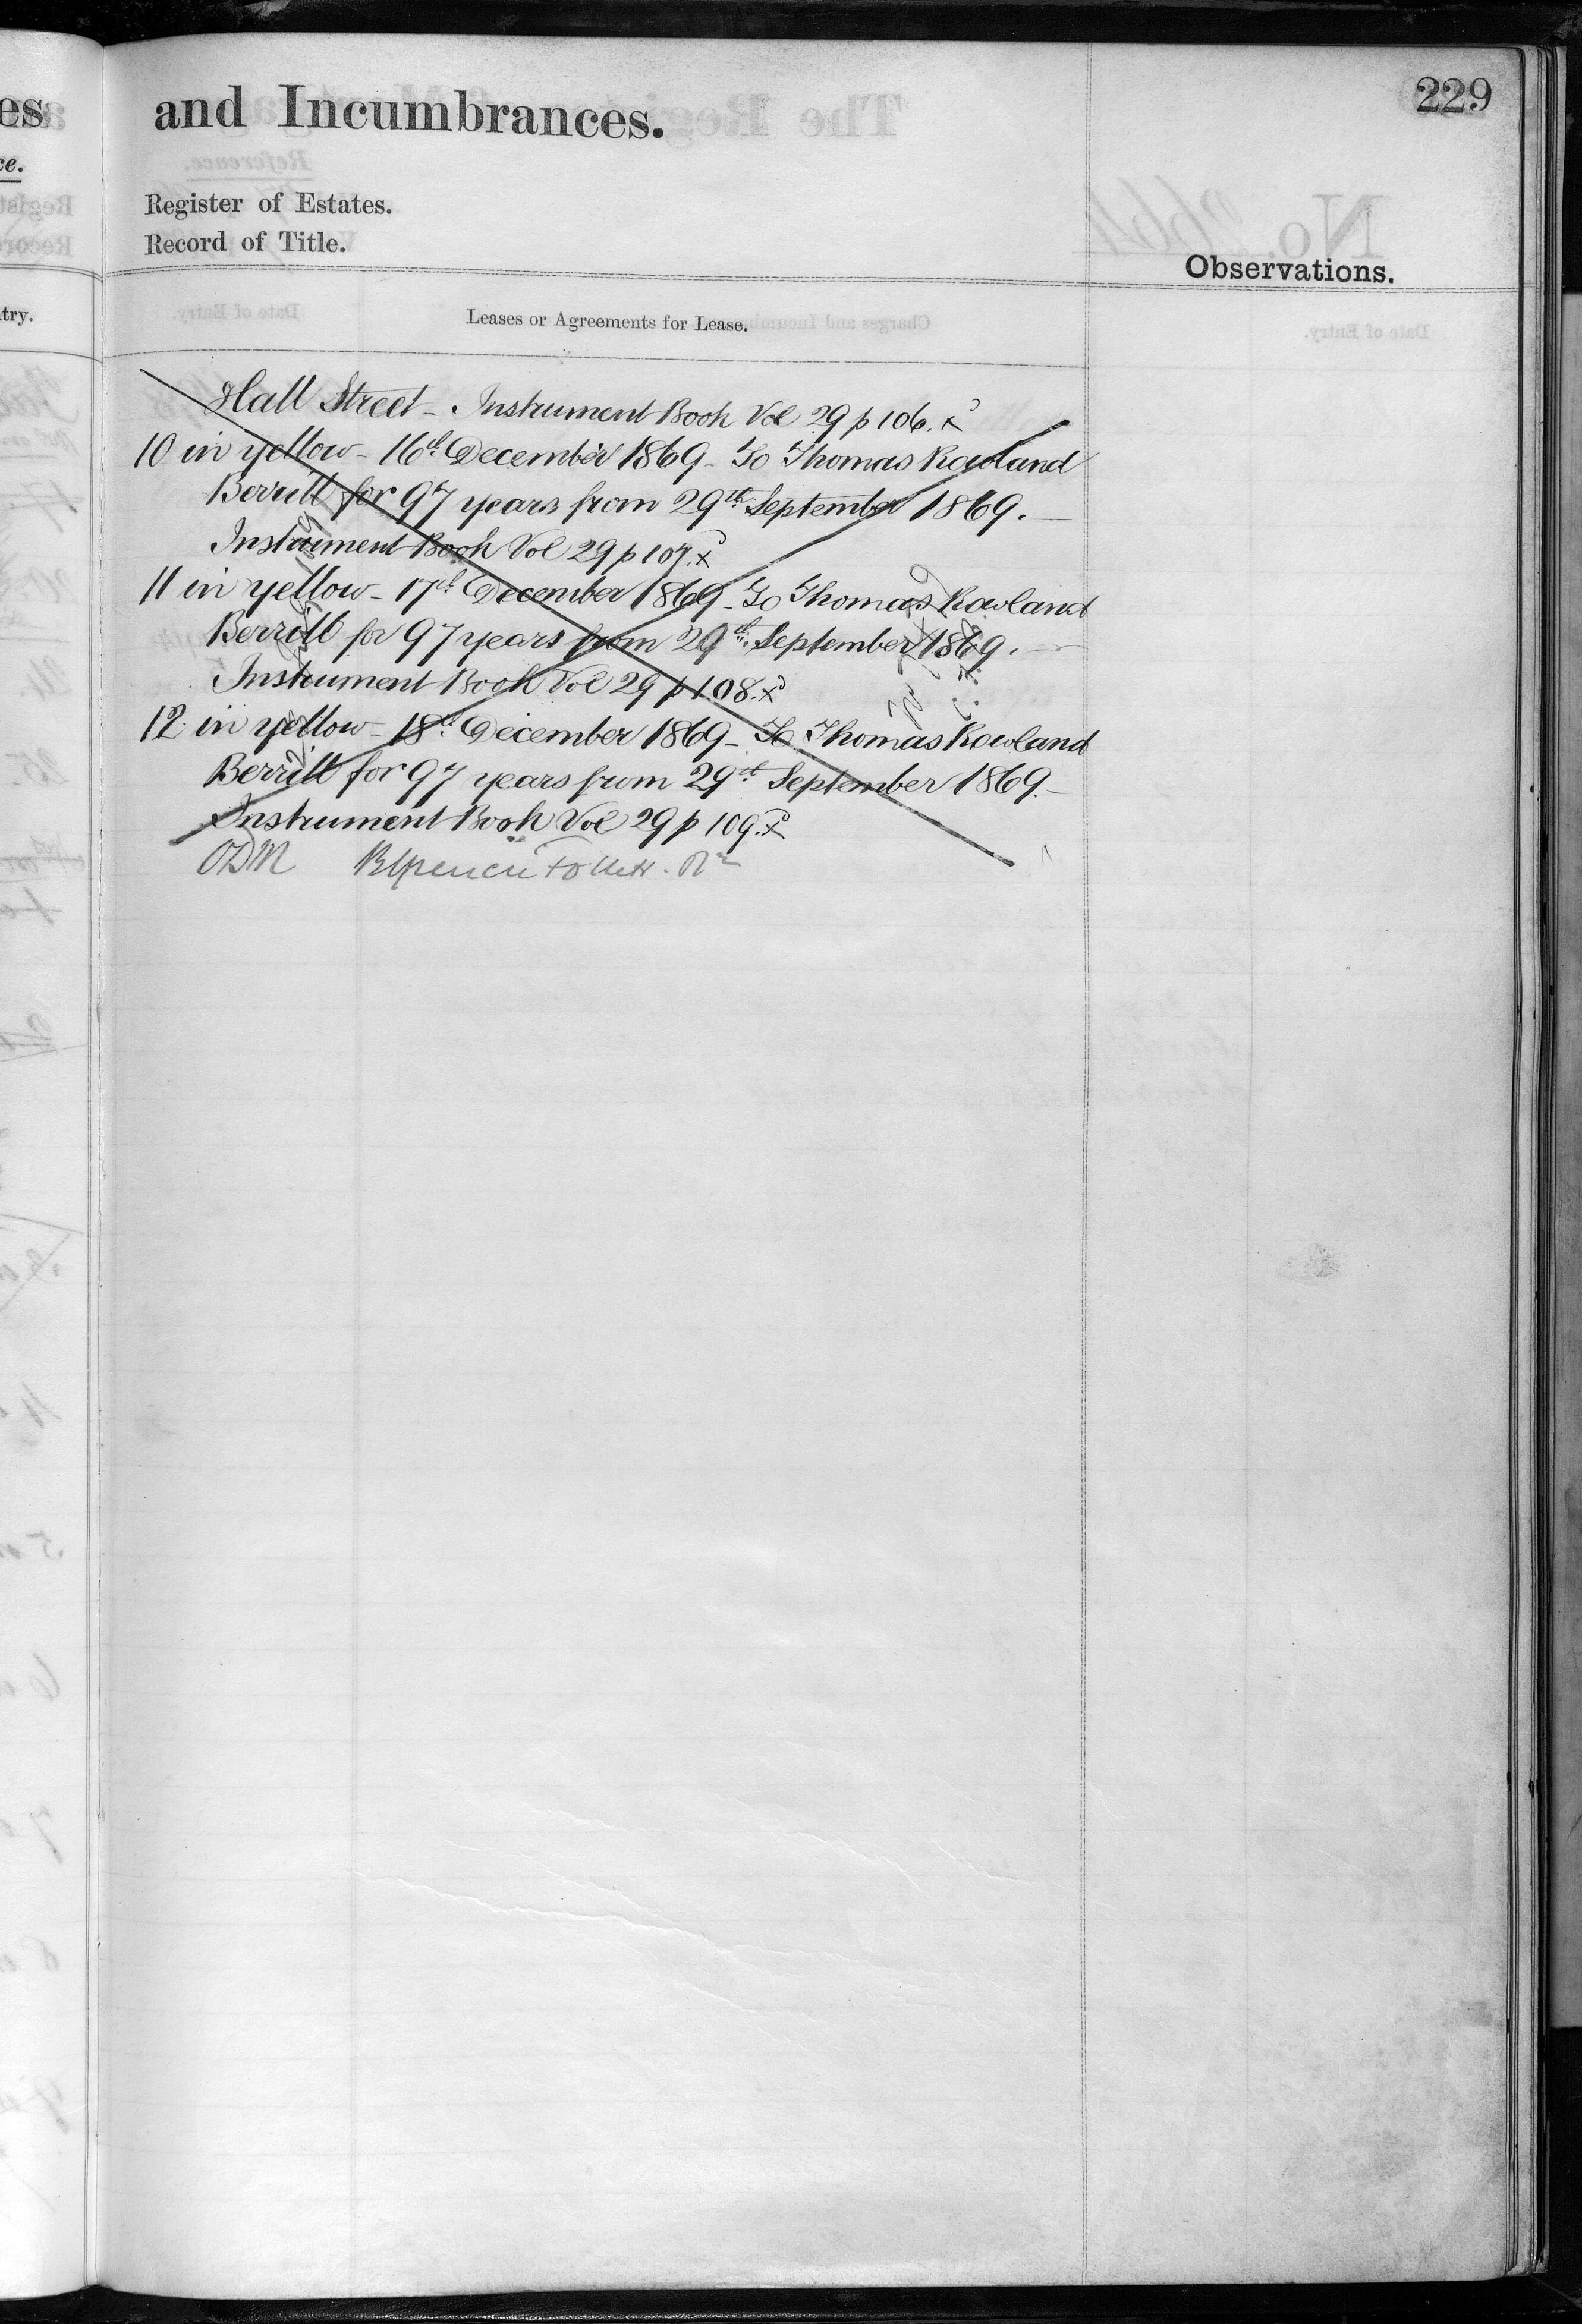 229
and Incumbrances.
Register of Estates.
Record of Title.
Observations.
Leases or Agreements for Lease.
Hall Street - Instrument Book Vol 29 p 106. x
10 in yellow - 16th December 1869 - To Thomas Rowland
Berrill for 97 years from 29th September 1869. -
Instrument Book Vol 29 p 107. x
11 in yellow - 17th December 1869 - To Thomas Rowland
Berrill for 97 years from 29th September 1869. -
Instrument Book Vol 29 p 108. x
12 in yellow - 18th December 1869 - To Thomas Rowland
Berrill for 97 years from 29th September 1869. -
Instrument Book Vol 29 p 109. x
ODM
es
ce.
try.